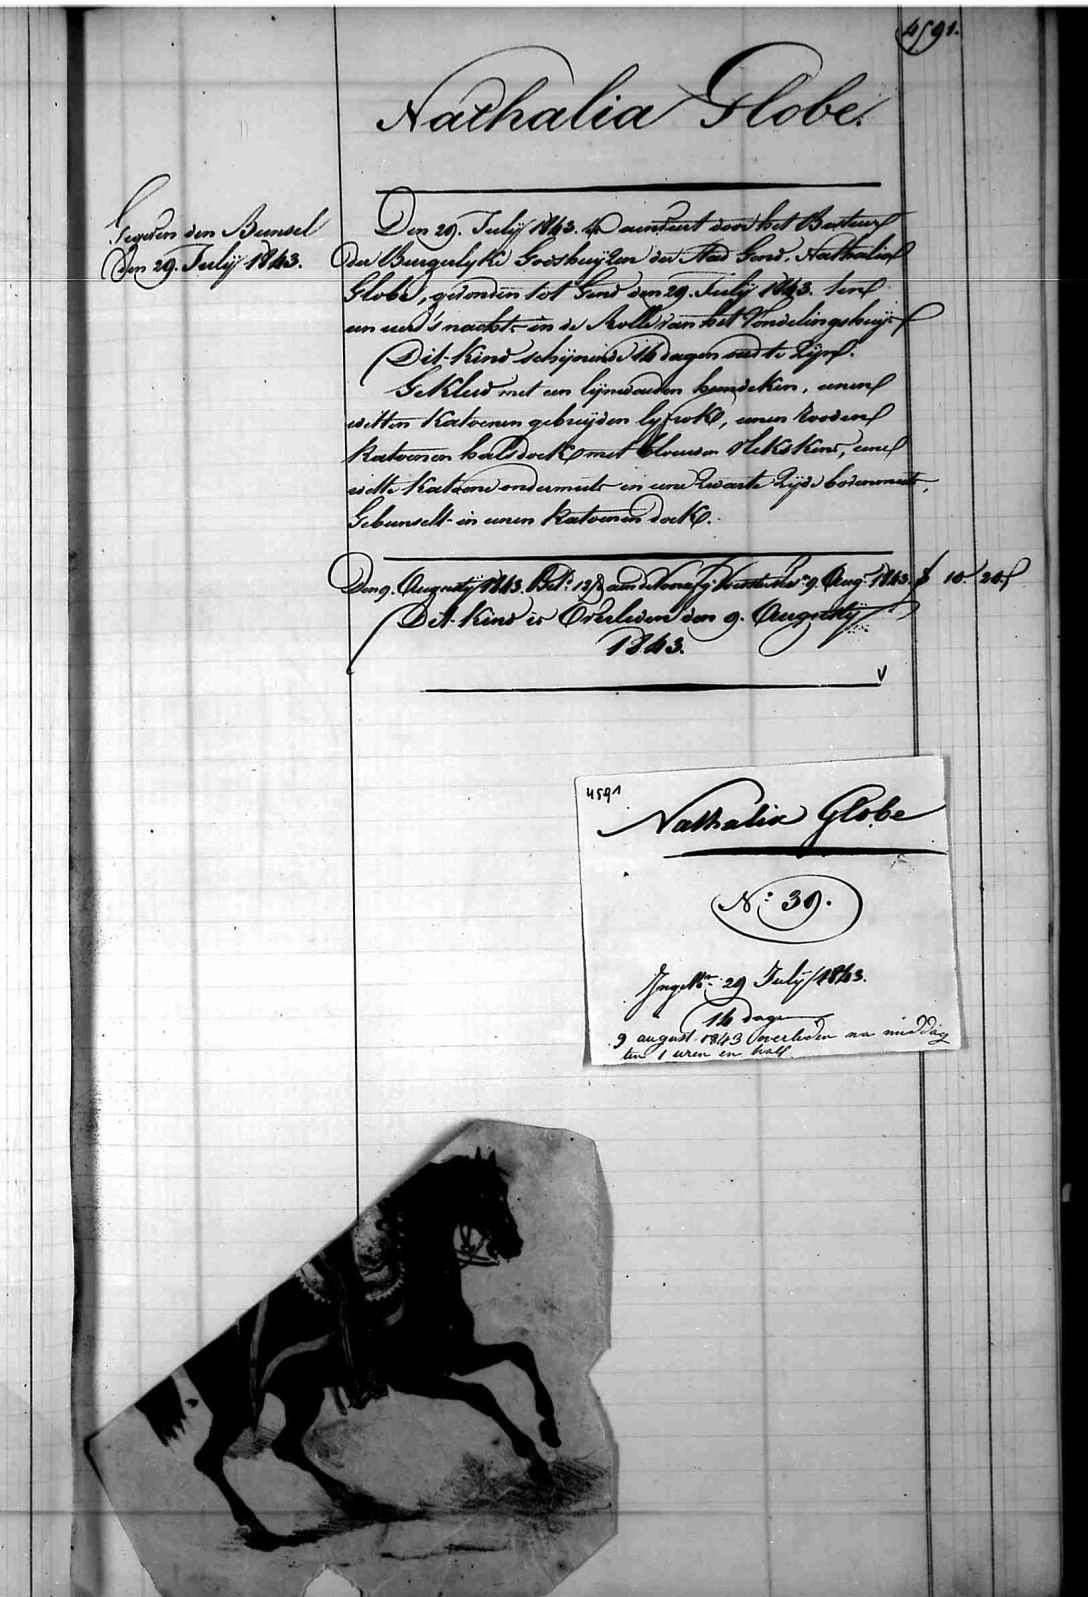 4591.
Nathalia Globe.
Gegeven den Bunsel
den 29. Julÿ 1843.
Den 29. Julÿ 1843. is aenveert door het Bestuer
der Burgelyke Godshuÿzen der Stad Gend. Nathalia
Globe, gevonden tot Gend den 29. Julÿ 1843. ten
een ure 's nachts in de Rolle van het Vondelingshuÿs
Dit kind schÿnende 14 dagen oud te zÿn.
Gekleed met een lÿnwaeden hemdeken, eenen
witten katoenen gebreÿden lÿfrok, eenen rooden
katoenen halsdoek met blauwe Vlekskens, eene
witte katoene ondermuts en eene zwarte zÿde bovenmuts,
Gebunselt in eenen katoenen doek.
Den 9. Augusty 1843. Bet. 12 aen de 9. Aug. 1843. f 10 20
Dit kind is Overleden den 9. Augusty
1843.
4591
Nathalia Globe
N: 39.
29 Julÿ 1843.
14 dagen
9 august 1843 overleden na middag
ten 1 uren en half